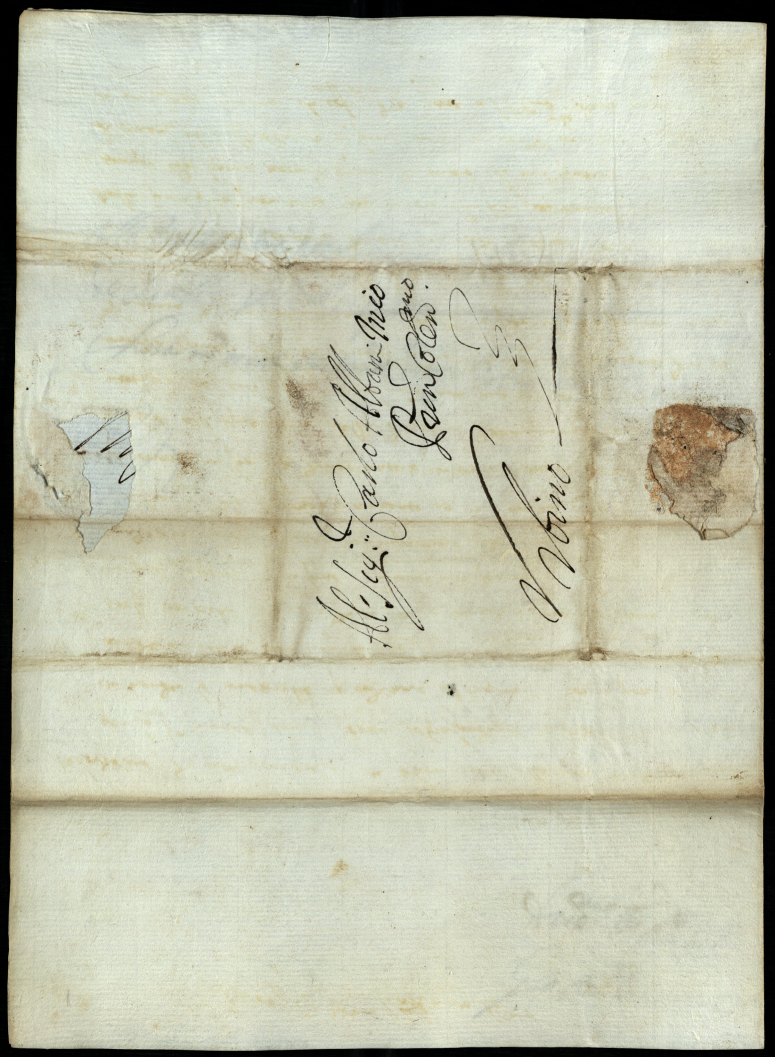 Al Sig.r Carlo Albani mio
Pron Colen.mo
Vrbino